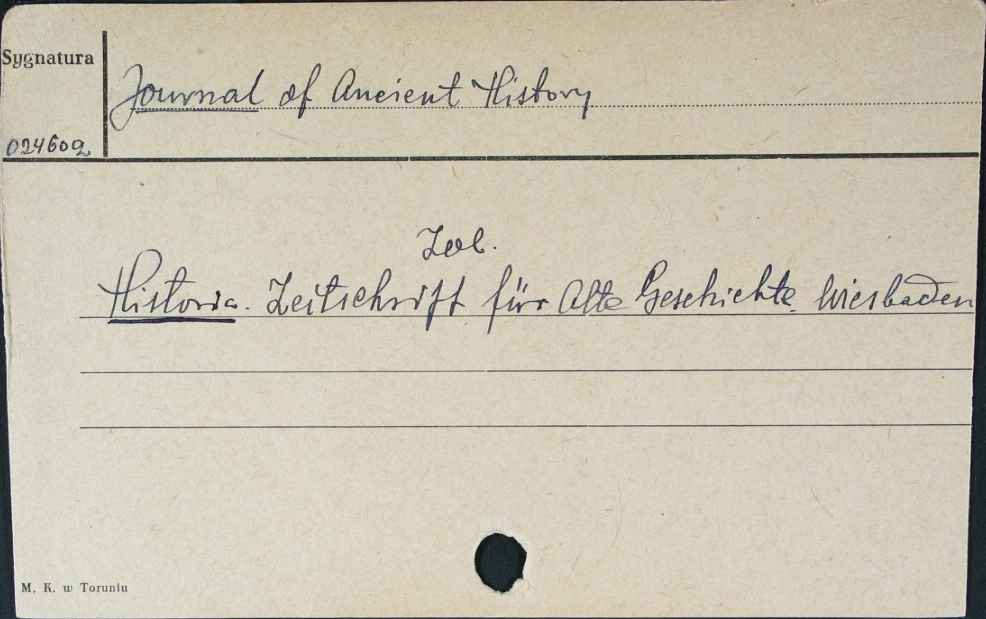 Sygnatura
Journal of Ancient History
024602
Zob.
Historia. Zeitschrift für Alte Geschichte. Wiesbaden
M. K. w Toruniu